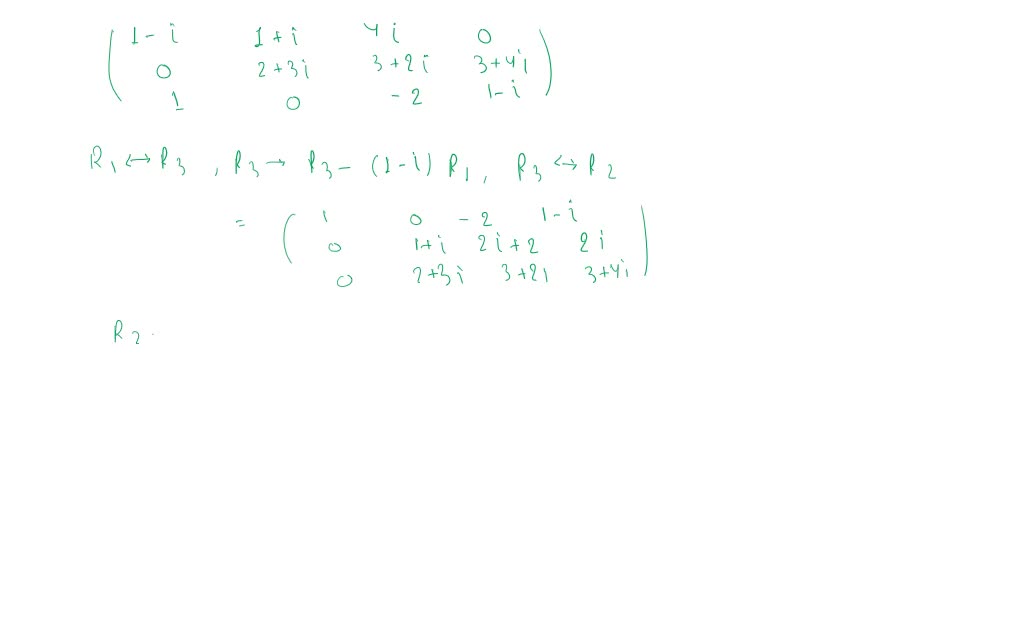 1 - i 1 + i 4i 0
0 2+3i 3+2i 3+4i
1 0 -2 1-i
R1 ↔ R3 , R3 → R3 - (1-i) R1, R3 ↔ R2
= 1 0 -2 1-i
0 1+i 2i+2 2i
0 2+3i 3+2i 3+4i
R2